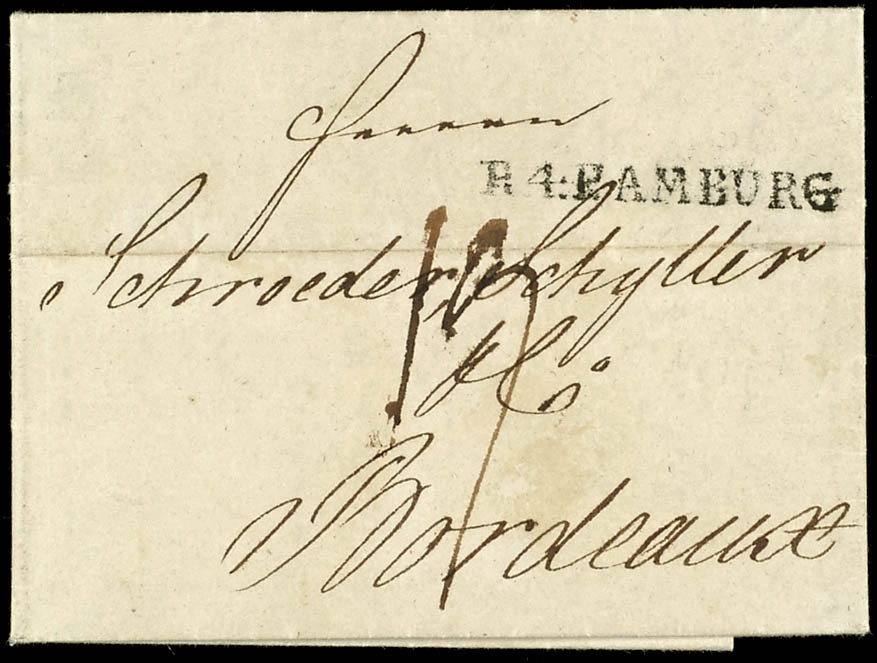 Herren
R.4.HAMBURG
Schroeder, Schyller
& Co
19
Bordeaux